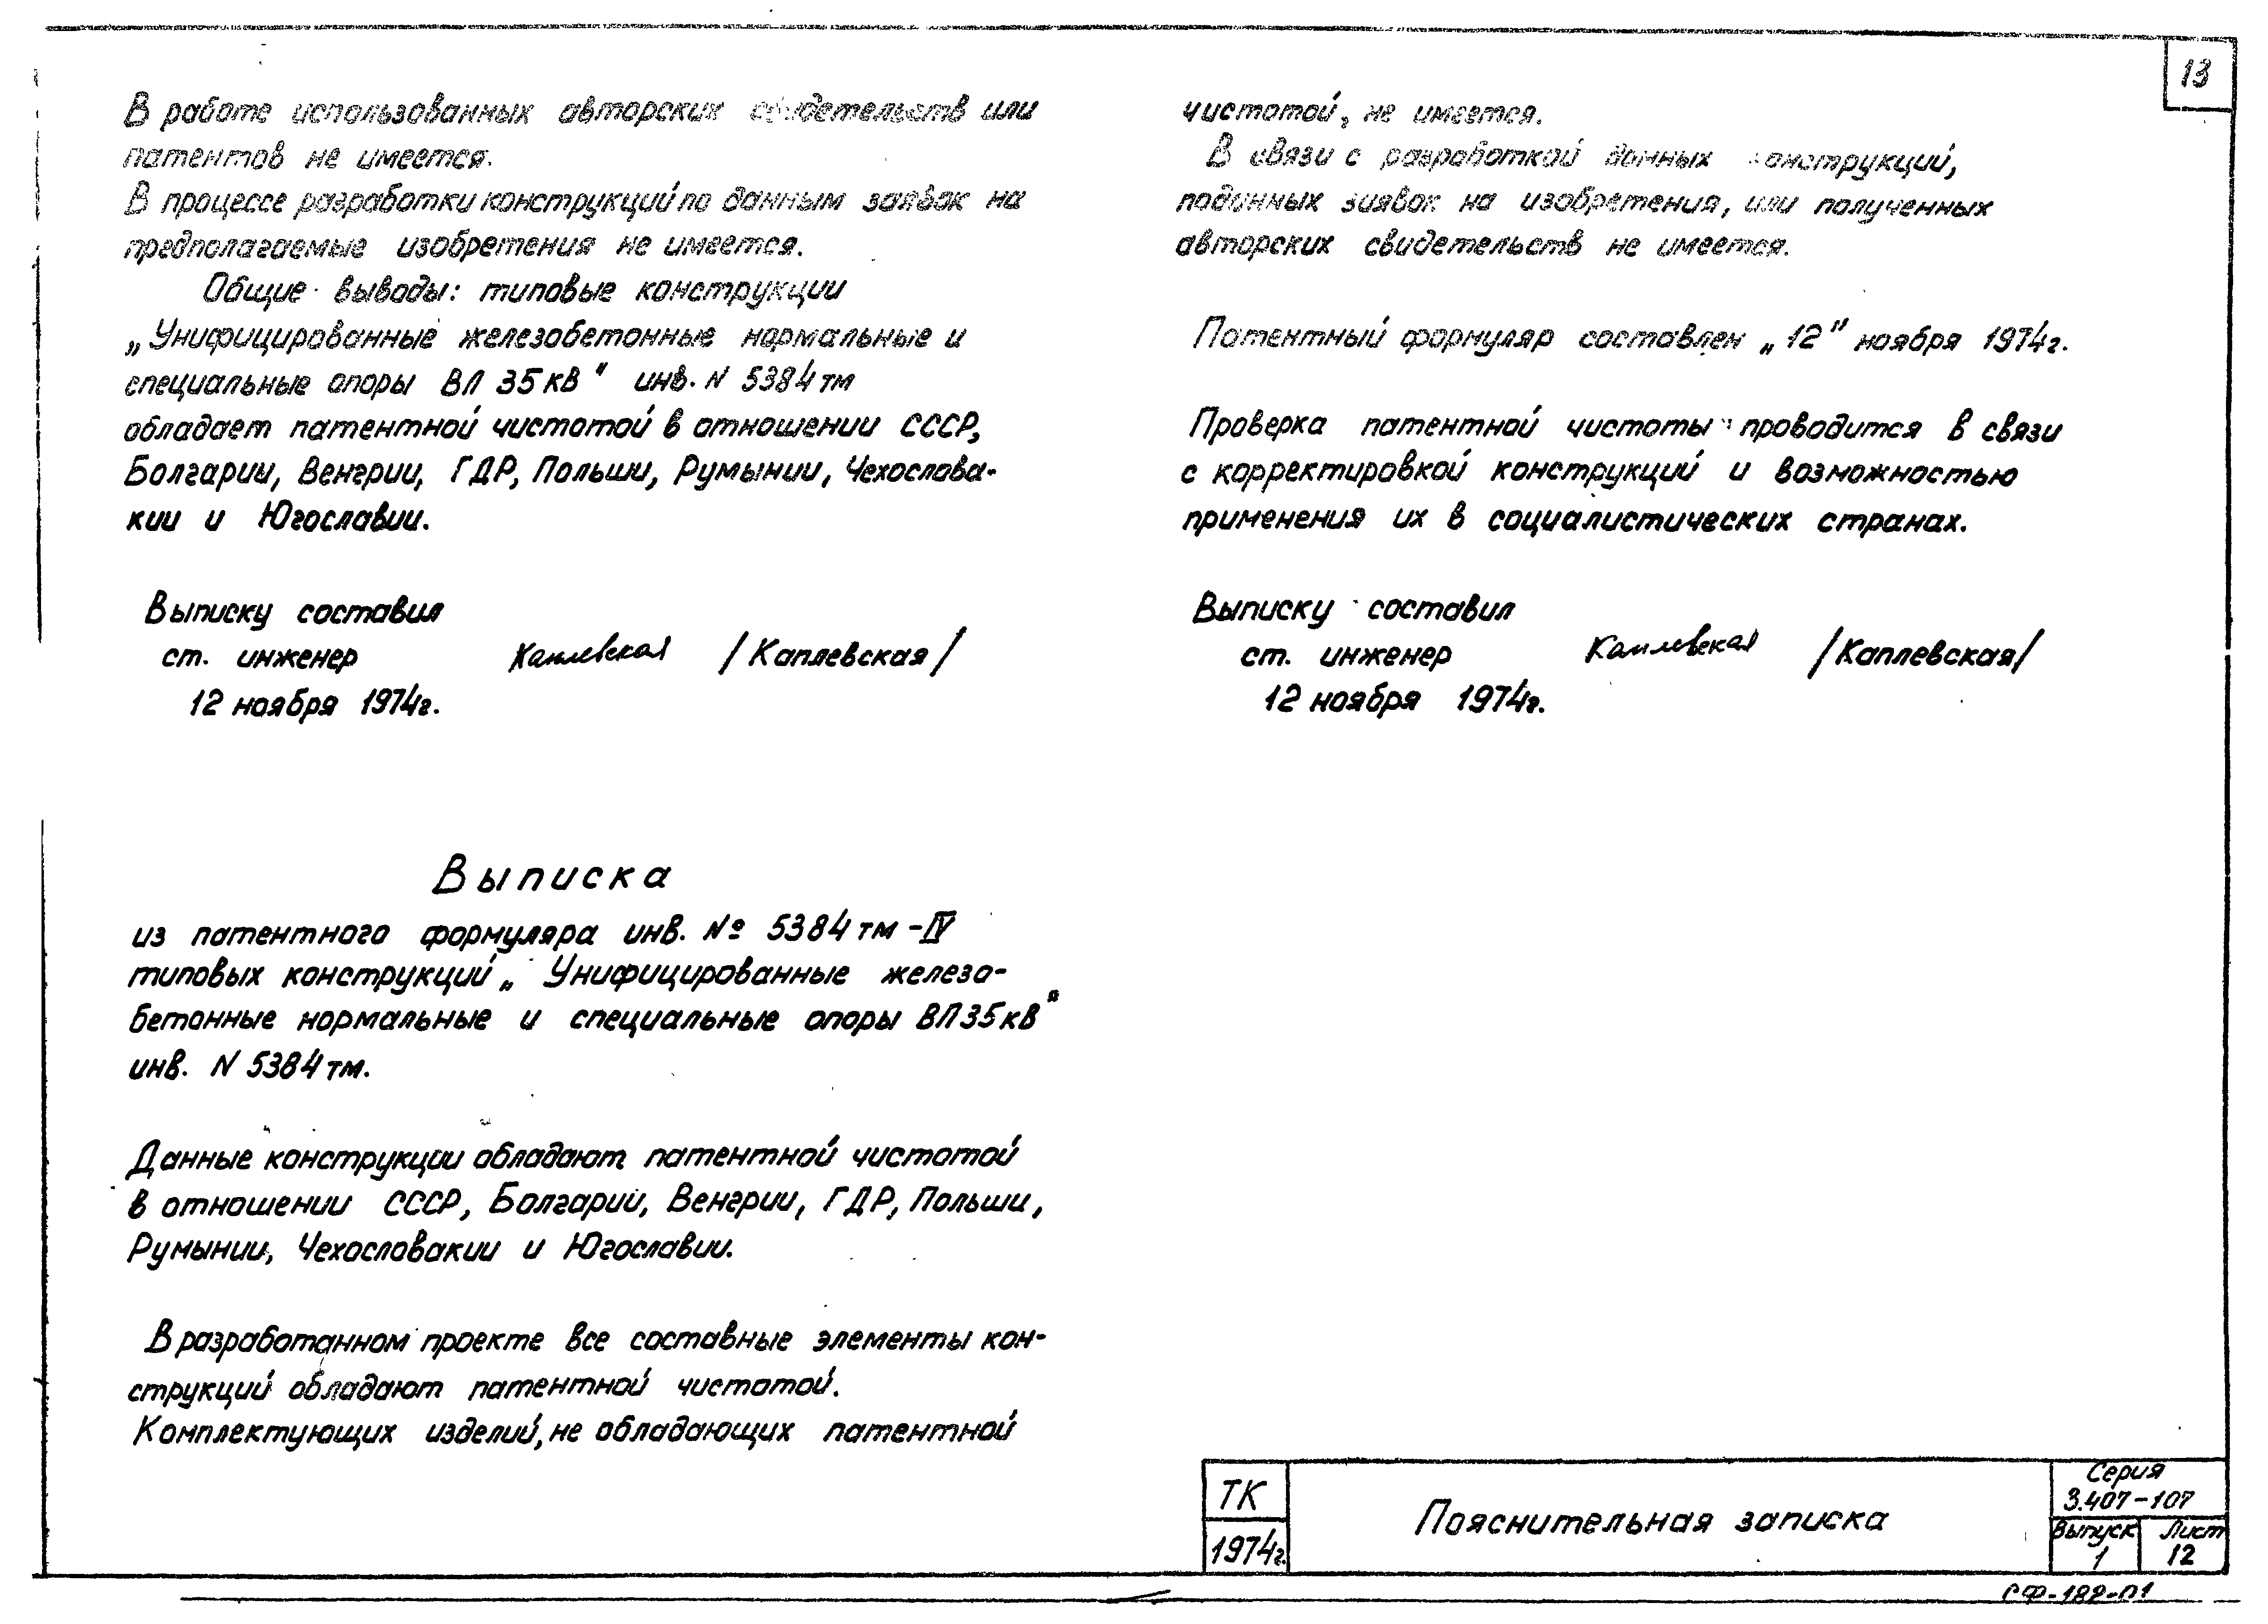 13
В работе использованных авторских свидетельств или
патентов не имеется.
В процессе разработки конструкций по данным заявок на
предполагаемые изобретения не имеется.
Общие выводы: типовые конструкции
„Унифицированные железобетонные нормальные и
специальные опоры ВЛ 35кВ" инв. N 5384тм
обладает патентной чистотой в отношении СССР,
Болгарии, Венгрии, ГДР, Польши, Румынии, Чехослова-
кии и Югославии.
Выписку составил
ст. инженер Каплевская /Каплевская/
12 ноября 1974г.
Выписка
из патентного формуляра инв. № 5384тм-IV
типовых конструкций „Унифицированные железо-
бетонные нормальные и специальные опоры ВЛ35кВ"
инв. N 5384тм.
Данные конструкции обладают патентной чистотой
в отношении СССР, Болгарии, Венгрии, ГДР, Польши,
Румынии, Чехословакии и Югославии.
В разработанном проекте все составные элементы кон-
струкций обладают патентной чистотой.
Комплектующих изделий, не обладающих патентной
чистотой, не имеется.
В связи с разработкой данных конструкций,
поданных заявок на изобретения, или полученных
авторских свидетельств не имеется.
Патентный формуляр составлен „12" ноября 1974г.
Проверка патентной чистоты проводится в связи
с корректировкой конструкций и возможностью
применения их в социалистических странах.
Выписку составил
ст. инженер Каплевская /Каплевская/
12 ноября 1974г.
ТК
1974г.
Пояснительная записка
Серия
3.407-107
Выпуск Лист
1 12
СФ-182-01